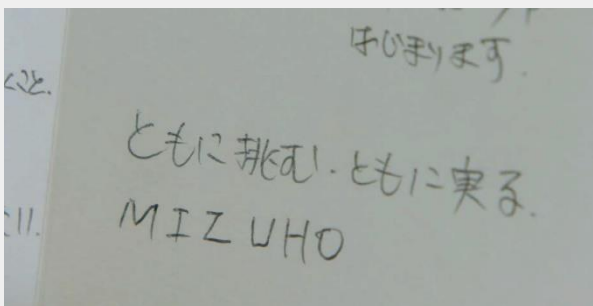 はじまります.
くこと.
ともに挑む.ともに実る.
MIZUHO